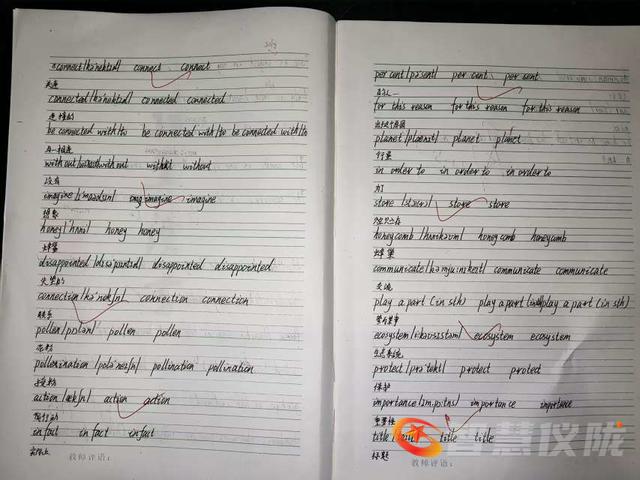 connect /kə'nekt/ connect connect
关连
connected /kə'nektɪd/ connected connected
连接的
be connected with/to be connected with/to be connected with/to
与…相连
without without without
没有
imagine /ɪ'mædʒɪn/ imagine imagine
想象
honey /'hʌni/ honey honey
蜂蜜
disappointed /dɪsə'pɔɪntɪd/ disappointed disappointed
失望的
connection /kə'nekʃn/ connection connection
联系
pollen /'pɒlən/ pollen pollen
花粉
pollenination pollination pollination
授粉
action /ækʃn/ action action
in fact in fact in fact
实际上
教师评语：
per cent /pə'sent/ per cent per cent
百分之…
for this reason for this reason for this reason
planet /'plænɪt/ planet planet
行星
in order to in order to in order to
为了
store /stɔː/ store store
honeycomb honeycomb honeycomb
蜂巢
communicate /kə'mjuːnɪkeɪt/ communicate communicate
交流
play a part (in sth) play a part play a part (in sth)
ecosystem ecosystem ecosystem
生态系统
protect /prə'tekt/ protect protect
保护
importance importance importance
重要性
title title title
标题
教师评语：
智慧仪陇